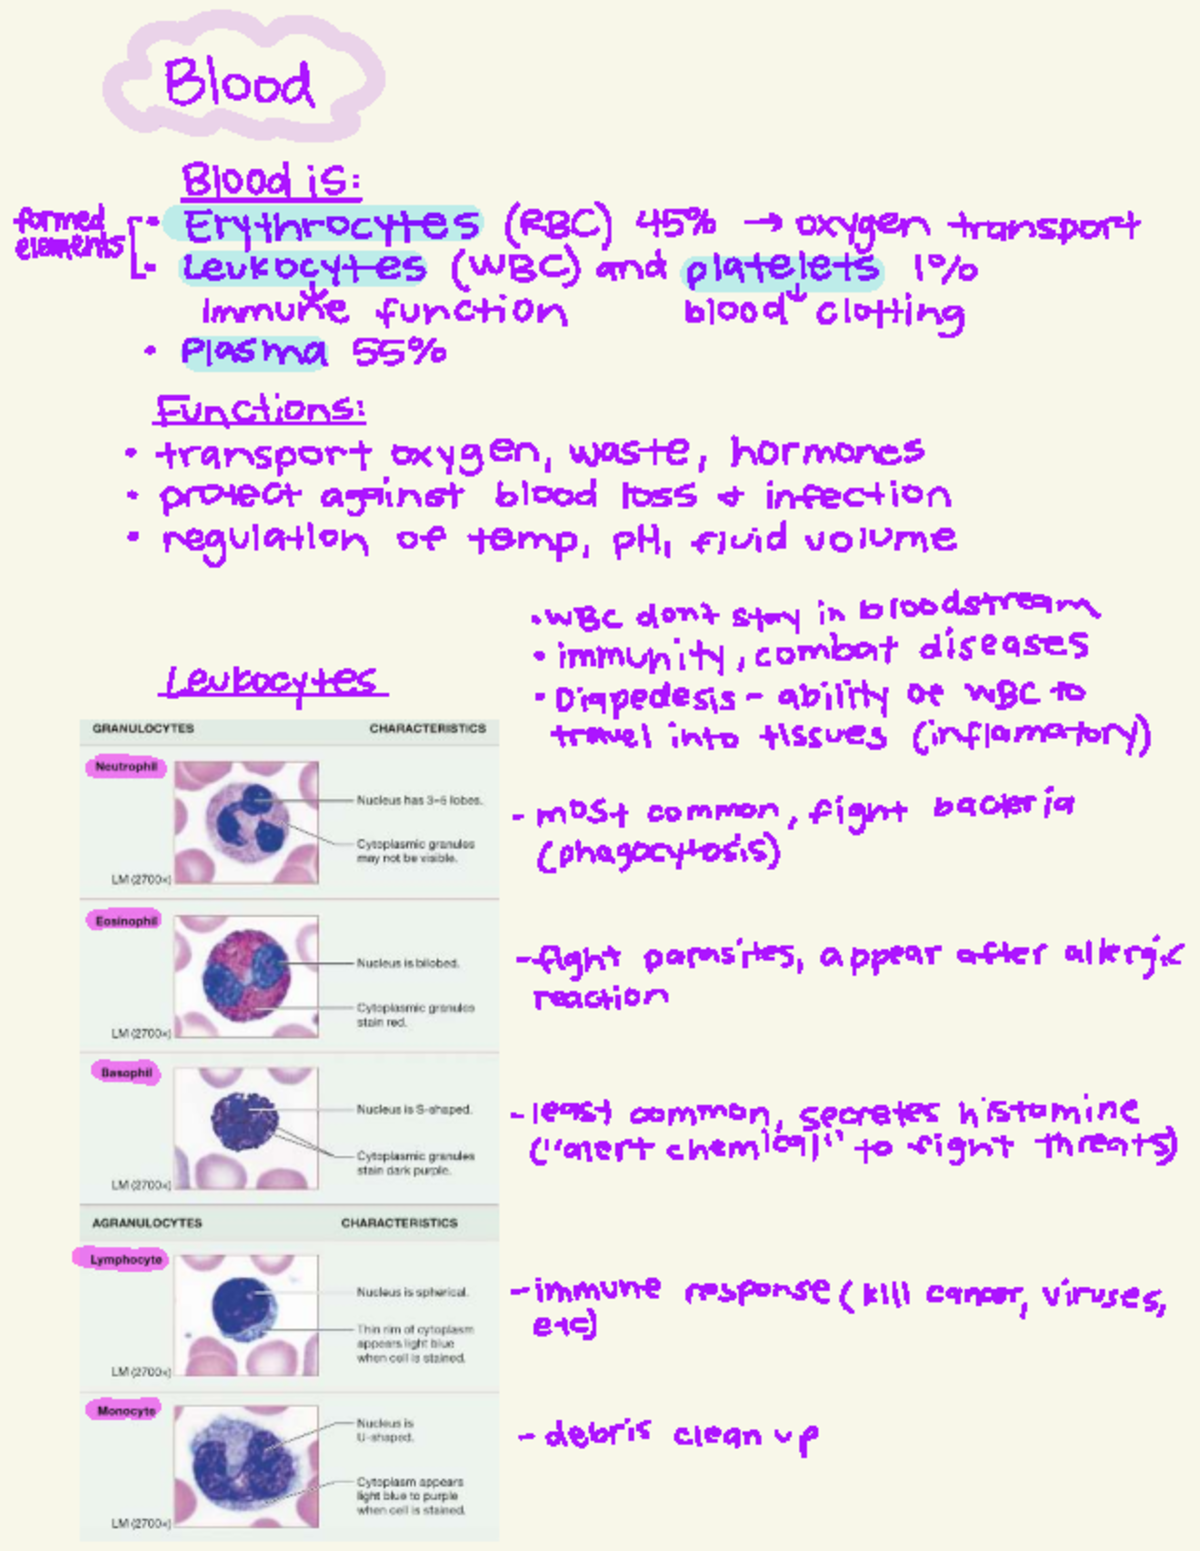 Blood
Blood is:
formed elements
• Erythrocytes (RBC) 45% → oxygen transport
• Leukocytes (WBC) and platelets 1%
Immune function blood clotting
• Plasma 55%
Functions:
• transport oxygen, waste, hormones
• protect against blood loss & infection
• regulation of temp, pH, fluid volume
• WBC don't stay in bloodstream
• immunity, combat diseases
• Diapedesis - ability of WBC to
travel into tissues (inflamatory)
Leukocytes
GRANULOCYTES CHARACTERISTICS
Neutrophil
Nucleus has 3-5 lobes.
Cytoplasmic granules
may not be visible.
LM (2700×)
- most common, fight bacteria
(phagocytosis)
Eosinophil
Nucleus is bilobed.
Cytoplasmic granules
stain red.
LM (2700×)
- fight parasites, appear after allergic
reaction
Basophil
Nucleus is S-shaped.
Cytoplasmic granules
stain dark purple.
LM (2700×)
- least common, secretes histamine
("alert chemical" to fight threats)
AGRANULOCYTES CHARACTERISTICS
Lymphocyte
Nucleus is spherical.
Thin rim of cytoplasm
appears light blue
when cell is stained.
LM (2700×)
- immune response (kill cancer, viruses,
etc)
Monocyte
Nucleus is
U-shaped.
Cytoplasm appears
light blue to purple
when cell is stained.
LM (2700×)
- debris clean up